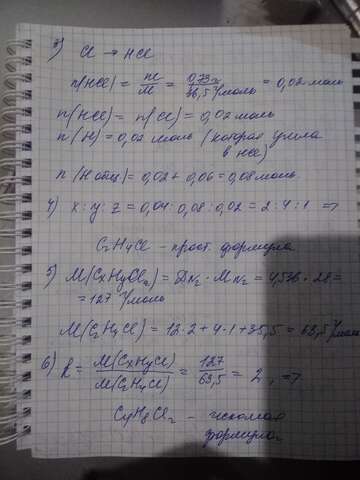 3) Cl → HCl
n(HCl) = m/M = 0,73г/36,5г/моль = 0,02 моль
n(HCl) = n(Cl) = 0,02 моль
n(H) = 0,02 моль (которая ушла
в HCl)
n(H общ) = 0,02 + 0,06 = 0,08 моль
4) x : y : z = 0,04 : 0,08 : 0,02 = 2 : 4 : 1 ⇒
C₂H₄Cl - прост. формула
5) M(CxHyClz) = DN₂ · MN₂ = 4,536 · 28 =
= 127 г/моль
M(C₂H₄Cl) = 12·2 + 4·1 + 35,5 = 63,5 г/моль
6) k = M(CxHyCl)/M(C₂H₄Cl) = 127/63,5 = 2, ⇒
C₄H₈Cl₂ - искомая
формула